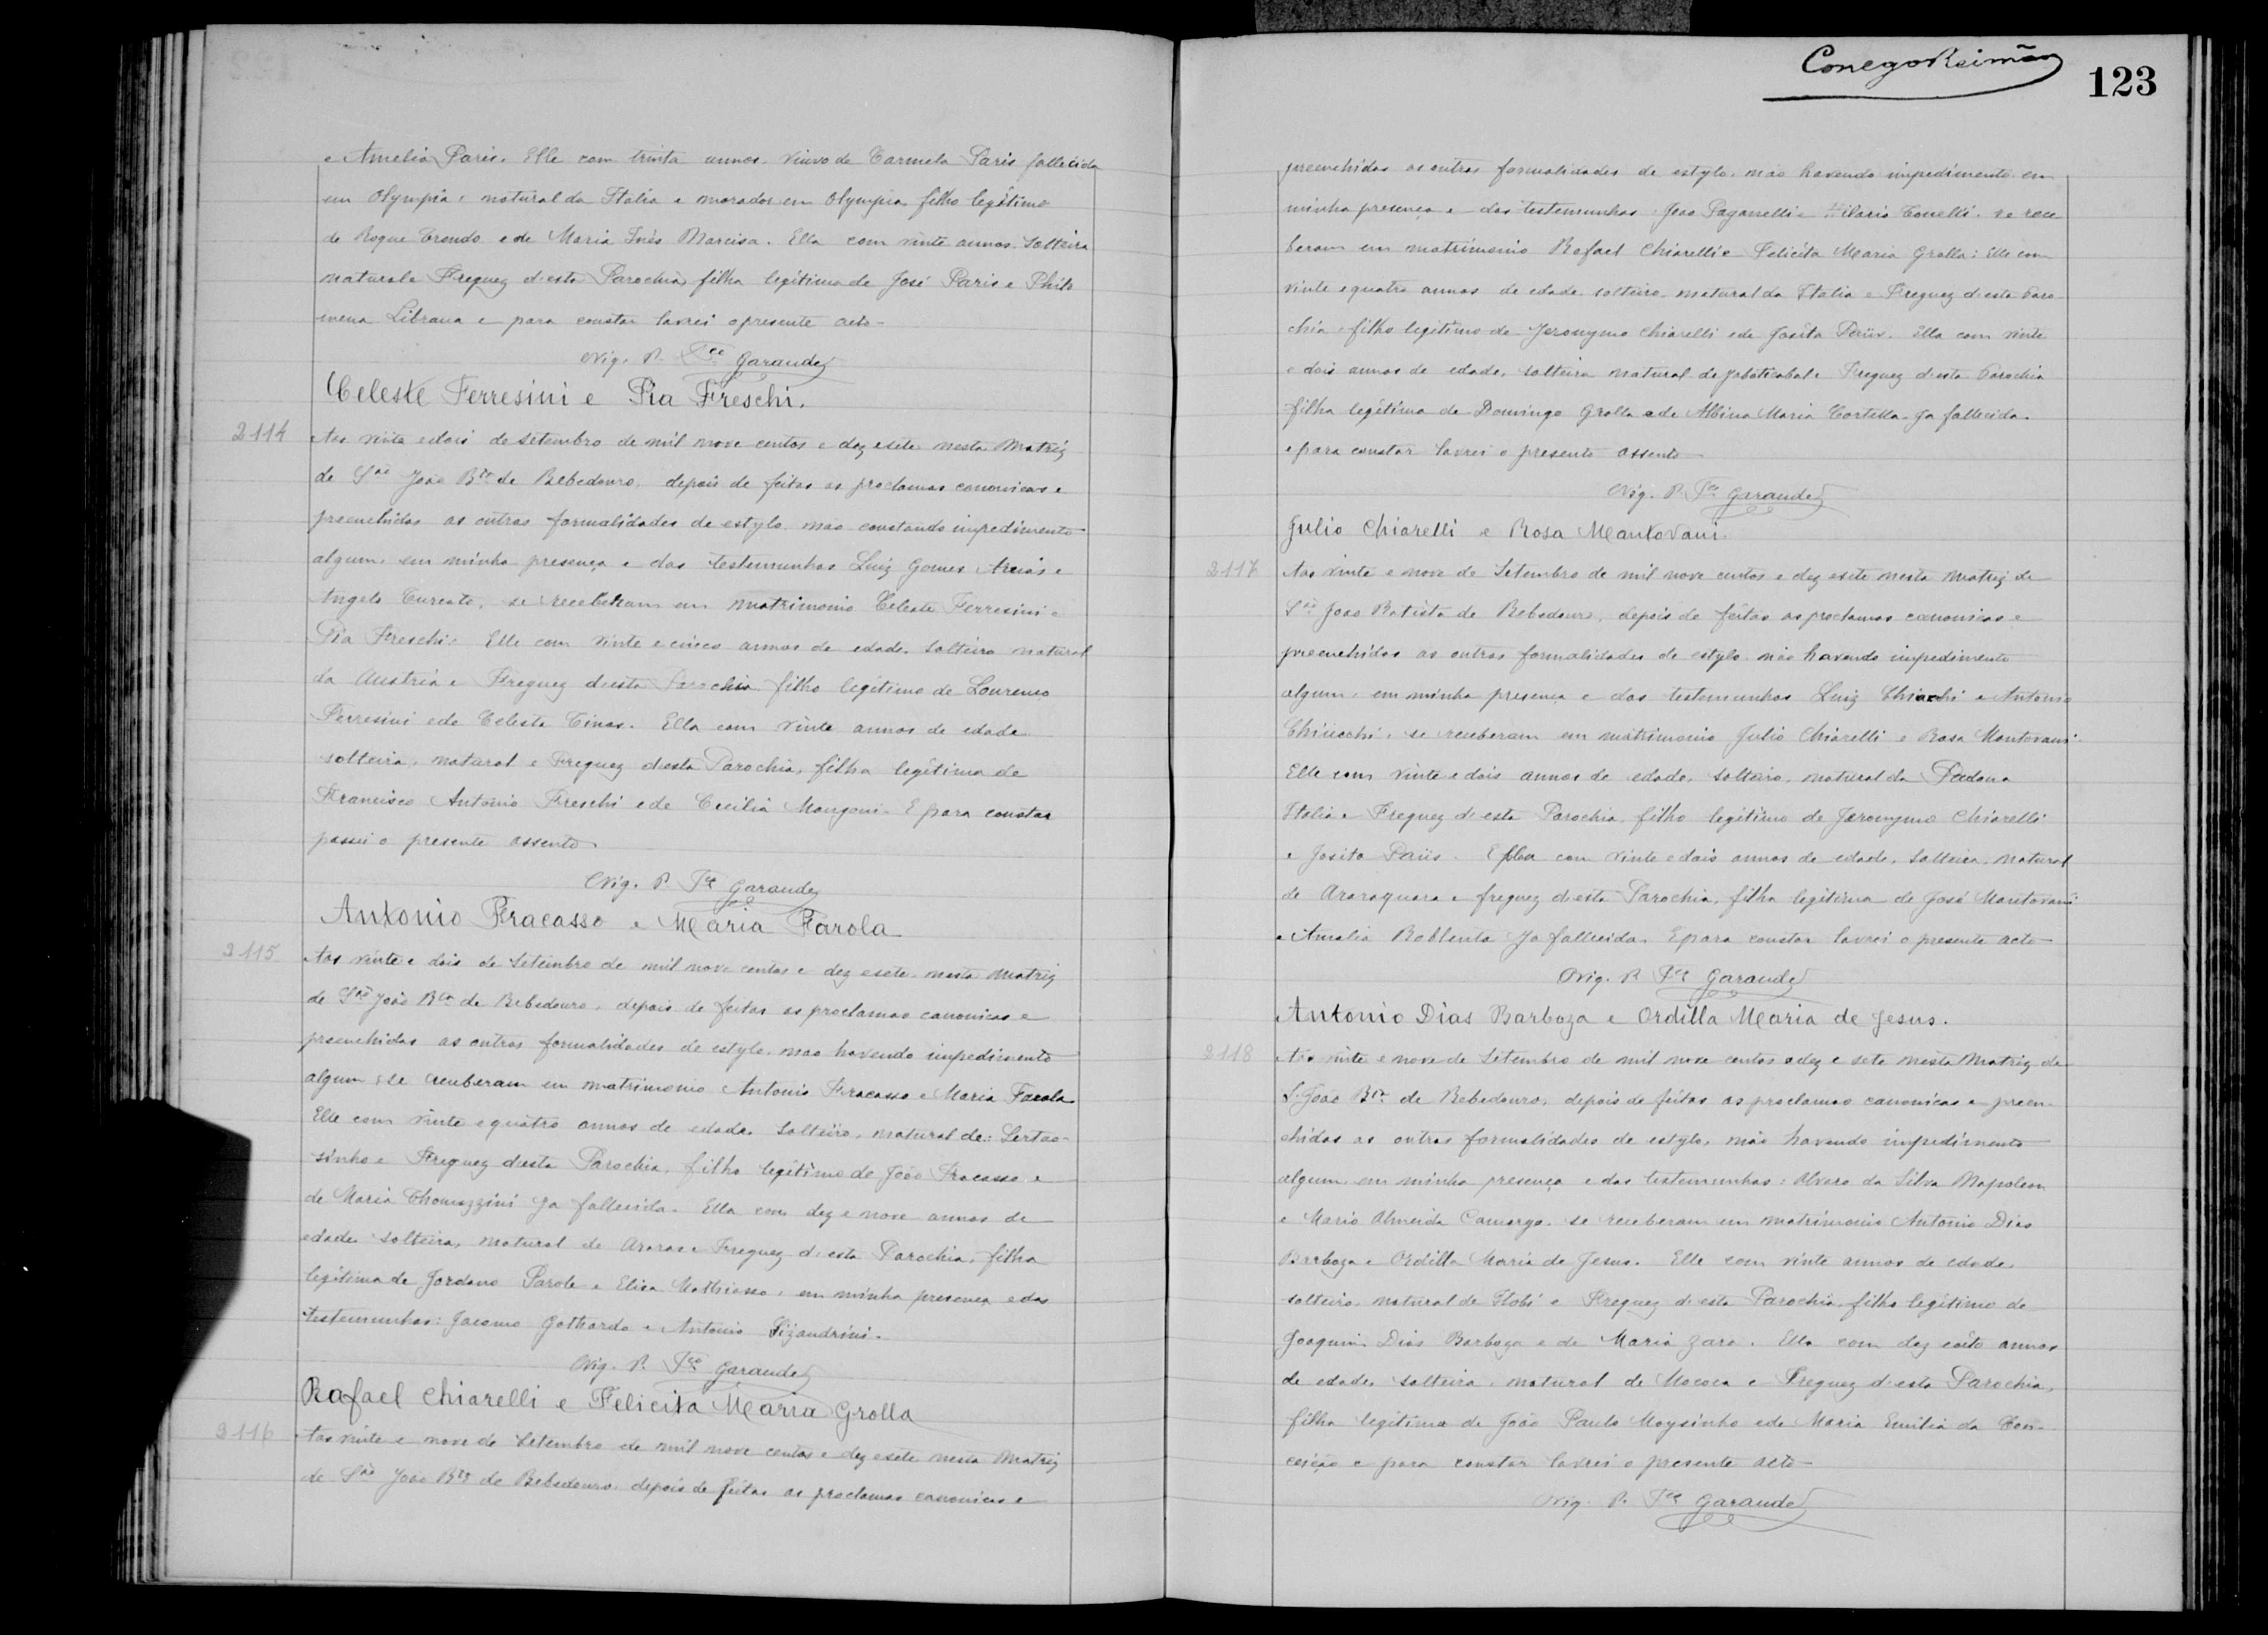 e Amelia Paris. Elle com trinta annos. viuvo de Carmela Paris fallecida
em Olympia, natural da Italia e morador em Olympia filho legitimo
de Roque Trondo e de Maria Inês Marcisa. Ella com vinte annos. Solteira
natural e Freguez d'esta Parochia, filha legitima de José Paris e Philo
mena Librana e para constar lavrei o presente acto-
Vig. P. Fco Garaude
Celeste Ferresini e Pia Freschi.
2114
Aos vinte e dois de Setembro de mil nove centos e dez e sete nesta Matriz
de São João Bta de Bebedouro, depois de feitas as proclamas canonicas e
preenchidas as outras formalidades de estylo. não constando impedimento
algum, em minha presença e das testemunhas Luiz Gomes Areias e
Angelo Cureato, se receberam em matrimonio Celeste Ferresini e
Pia Freschi: Elle com vinte e cinco annos de edade. Solteiro natural
da Austria e Freguez d'esta Parochia filho legitimo de Lourenço
Ferresini e de Celeste Cinos. Ella com vinte annos de edade
solteira, natural e Freguez desta Parochia, filha legitima de
Francisco Antonio Freschi e de Cecilia Mongoni. E para constar
passei o presente assento
Vig. P. Fco Garaude
Antonio Fracasso e Maria Farola
2115
Aos vinte e dois de Setembro de mil nove centos e dez e sete nesta Matriz
de São João Bta de Bebedouro, depois de feitas as proclamas canonicas e
preenchidas as outras formalidades de estylo. não havendo impedimento
algum, se receberam em matrimonio Antonio Fracasso e Maria Farola
Elle com vinte e quatro annos de edade. Solteiro, natural de: Sertão-
sinho e Freguez desta Parochia, filho legitimo de João Fracasso e
de Maria Thomazzini já fallecida. Ella com dez e nove annos de
edade solteira, natural de Araras e Freguez d'esta Parochia, filha
legitima de Jordano Parole e Elisa Mathiasso, em minha presença e das
testemunhas: Jacomo Gothardo e Antonio Lizandrini.
Vig. P. Fco Garaude
Rafael Chiarelli e Felicita Maria Grolla
2116
Aos vinte e nove de Setembro de mil nove centos e dez e sete nesta Matriz
de São João Bta de Bebedouro. depois de feitas as proclamas canonicas e
Conego Reimão
123
preenchidas as outras formalidades de estylo. não havendo impedimento em
minha presença e das testemunhas João Paganelli e Hilario Tonelli. se rece
beram em matrimonio Rafael Chiarelli e Felicita Maria Grolla: Elle com
vinte e quatro annos de edade solteiro. natural da Italia e Freguez d'esta Paro
chia, filho legitimo de Jeronymo Chiarelli e de Josita Paüs. Ella com vinte
e dois annos de edade, solteira natural de Jaboticabal e Freguez d'esta Parochia
filha legitima de Domingo Grolla e de Albina Maria Cortella já fallecida.
e para constar lavrei o presente assento
Vig. P. Fco Garaude
Julio Chiarelli e Rosa Mantovani.
2117
Aos vinte e nove de Setembro de mil nove centos e dez e sete nesta Matriz de
São João Batista de Bebedouro, depois de feitas as proclamas canonicas e
preenchidas as outras formalidades de estylo não havendo impedimento
algum, em minha presença e das testemunhas Luiz Chiacchi e Antonio
Chiiecchi, se receberam em matrimonio Julio Chiarelli e Rosa Mantovani.
Elle com vinte e dois annos de edade, solteiro, natural da Padova
Italia e Freguez d'esta Parochia filho legitimo de Jeronymo Chiarelli
e Josita Paüs. Ella com vinte e dois annos de edade. Solteira, natural
de Araraquara e freguez d'esta Parochia, filha legitima de José Mantovani
e Amalia Roblenta já fallecida. E para constar lavrei o presente acto-
Vig. P. Fco Garaude
Antonio Dias Barboza e Ordilla Maria de Jesus.
2118
Aos vinte e nove de Setembro de mil nove centos e dez e sete nesta Matriz de
S. João Bta de Bebedouro, depois de feitas as proclamas canonicas e preen-
chidas as outras formalidades de estylo, não havendo impedimento
algum em minha presença e das testemunhas: Alvaro da Silva Napoleon
e Mario Almeida Camargo. se receberam em matrimonio Antonio Dias
Barboza e Ordilla Maria de Jesus. Elle com vinte annos de edade
solteiro, natural de Itobi e Freguez d'esta Parochia, filho legitimo de
Joaquim Dias Barboza e de Maria Zara. Ella com dez e oito annos
de edade, solteira, natural de Mococa e Freguez d'esta Parochia,
filha legitima de João Paulo Moysinho e de Maria Emilia da Con-
ceição e para constar lavrei o presente acto-
Vig. P. Fco Garaude